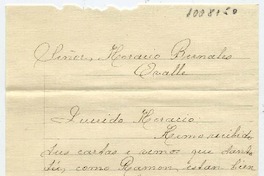 Señor Horacio Binales
Ovalle
Querido Horacio
Hemos recibido
sus cartas i vemos que tanto
tú, como Ramon, estan bien